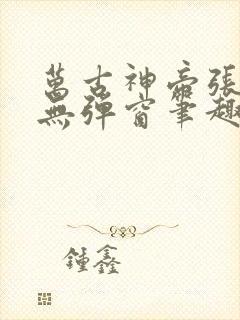 萬古神帝張
無彈窗筆趣
鍾鑫